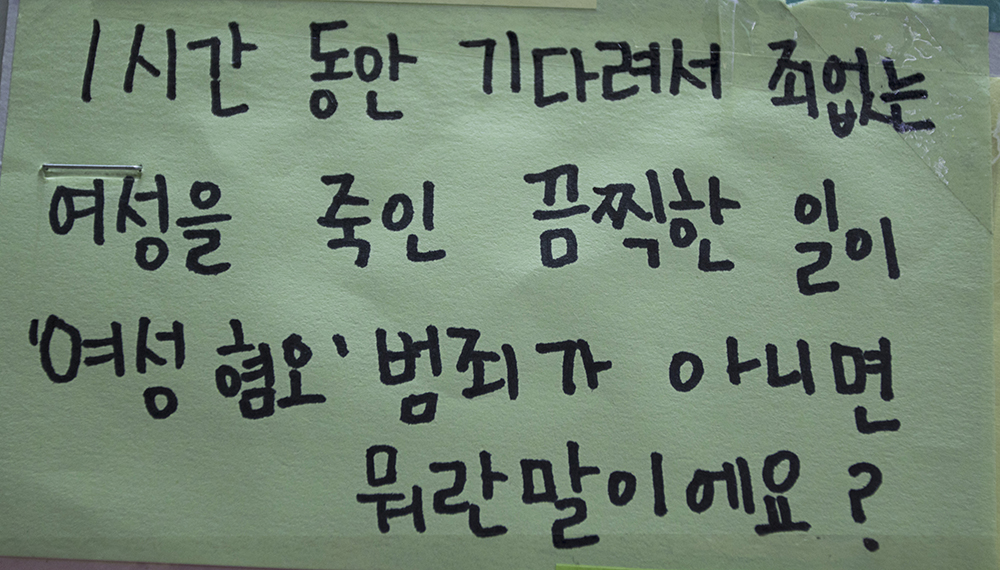 1시간 동안 기다려서 죄없는
여성을 죽인 끔찍한 일이
'여성 혐오' 범죄가 아니면
뭐란말이에요?